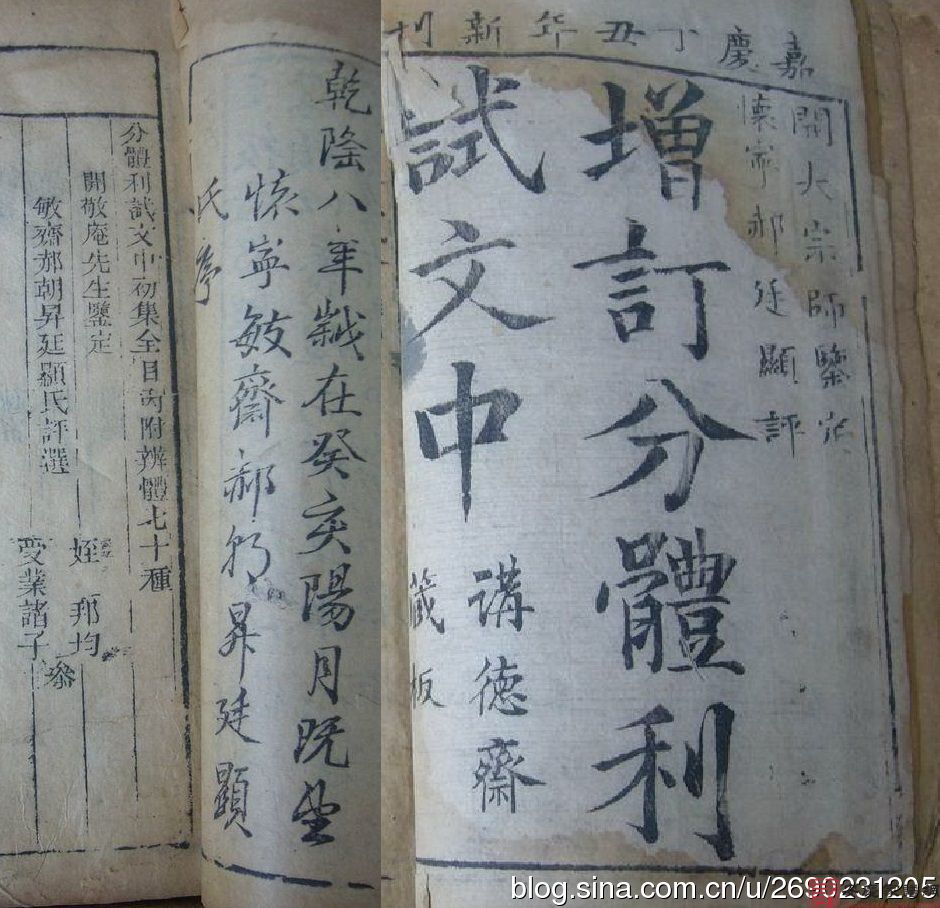 嘉慶丁丑年新刊
開大宗師鑒定
懷寧郝廷顯評
增訂分體利
試文中
講德齋
藏板
乾隆八年歲在癸亥陽月既望
懷寧敏齋郝朝昇廷顯
氏序
分體利試文中初集全目前附辨體七十種
開敬庵先生鑒定
敏齋郝朝昇廷顯氏評選
姪邦均
受業諸子
參
blog.sina.com.cn/u/2690231205